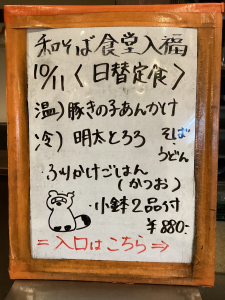 和そば食堂入福
10/11〈日替定食〉
温）豚きの子あんかけ
冷）明太とろろ そば・うどん
・ふりかけごはん
（かつお）
・小鉢2品付
¥880-
=入口はこちら⇒